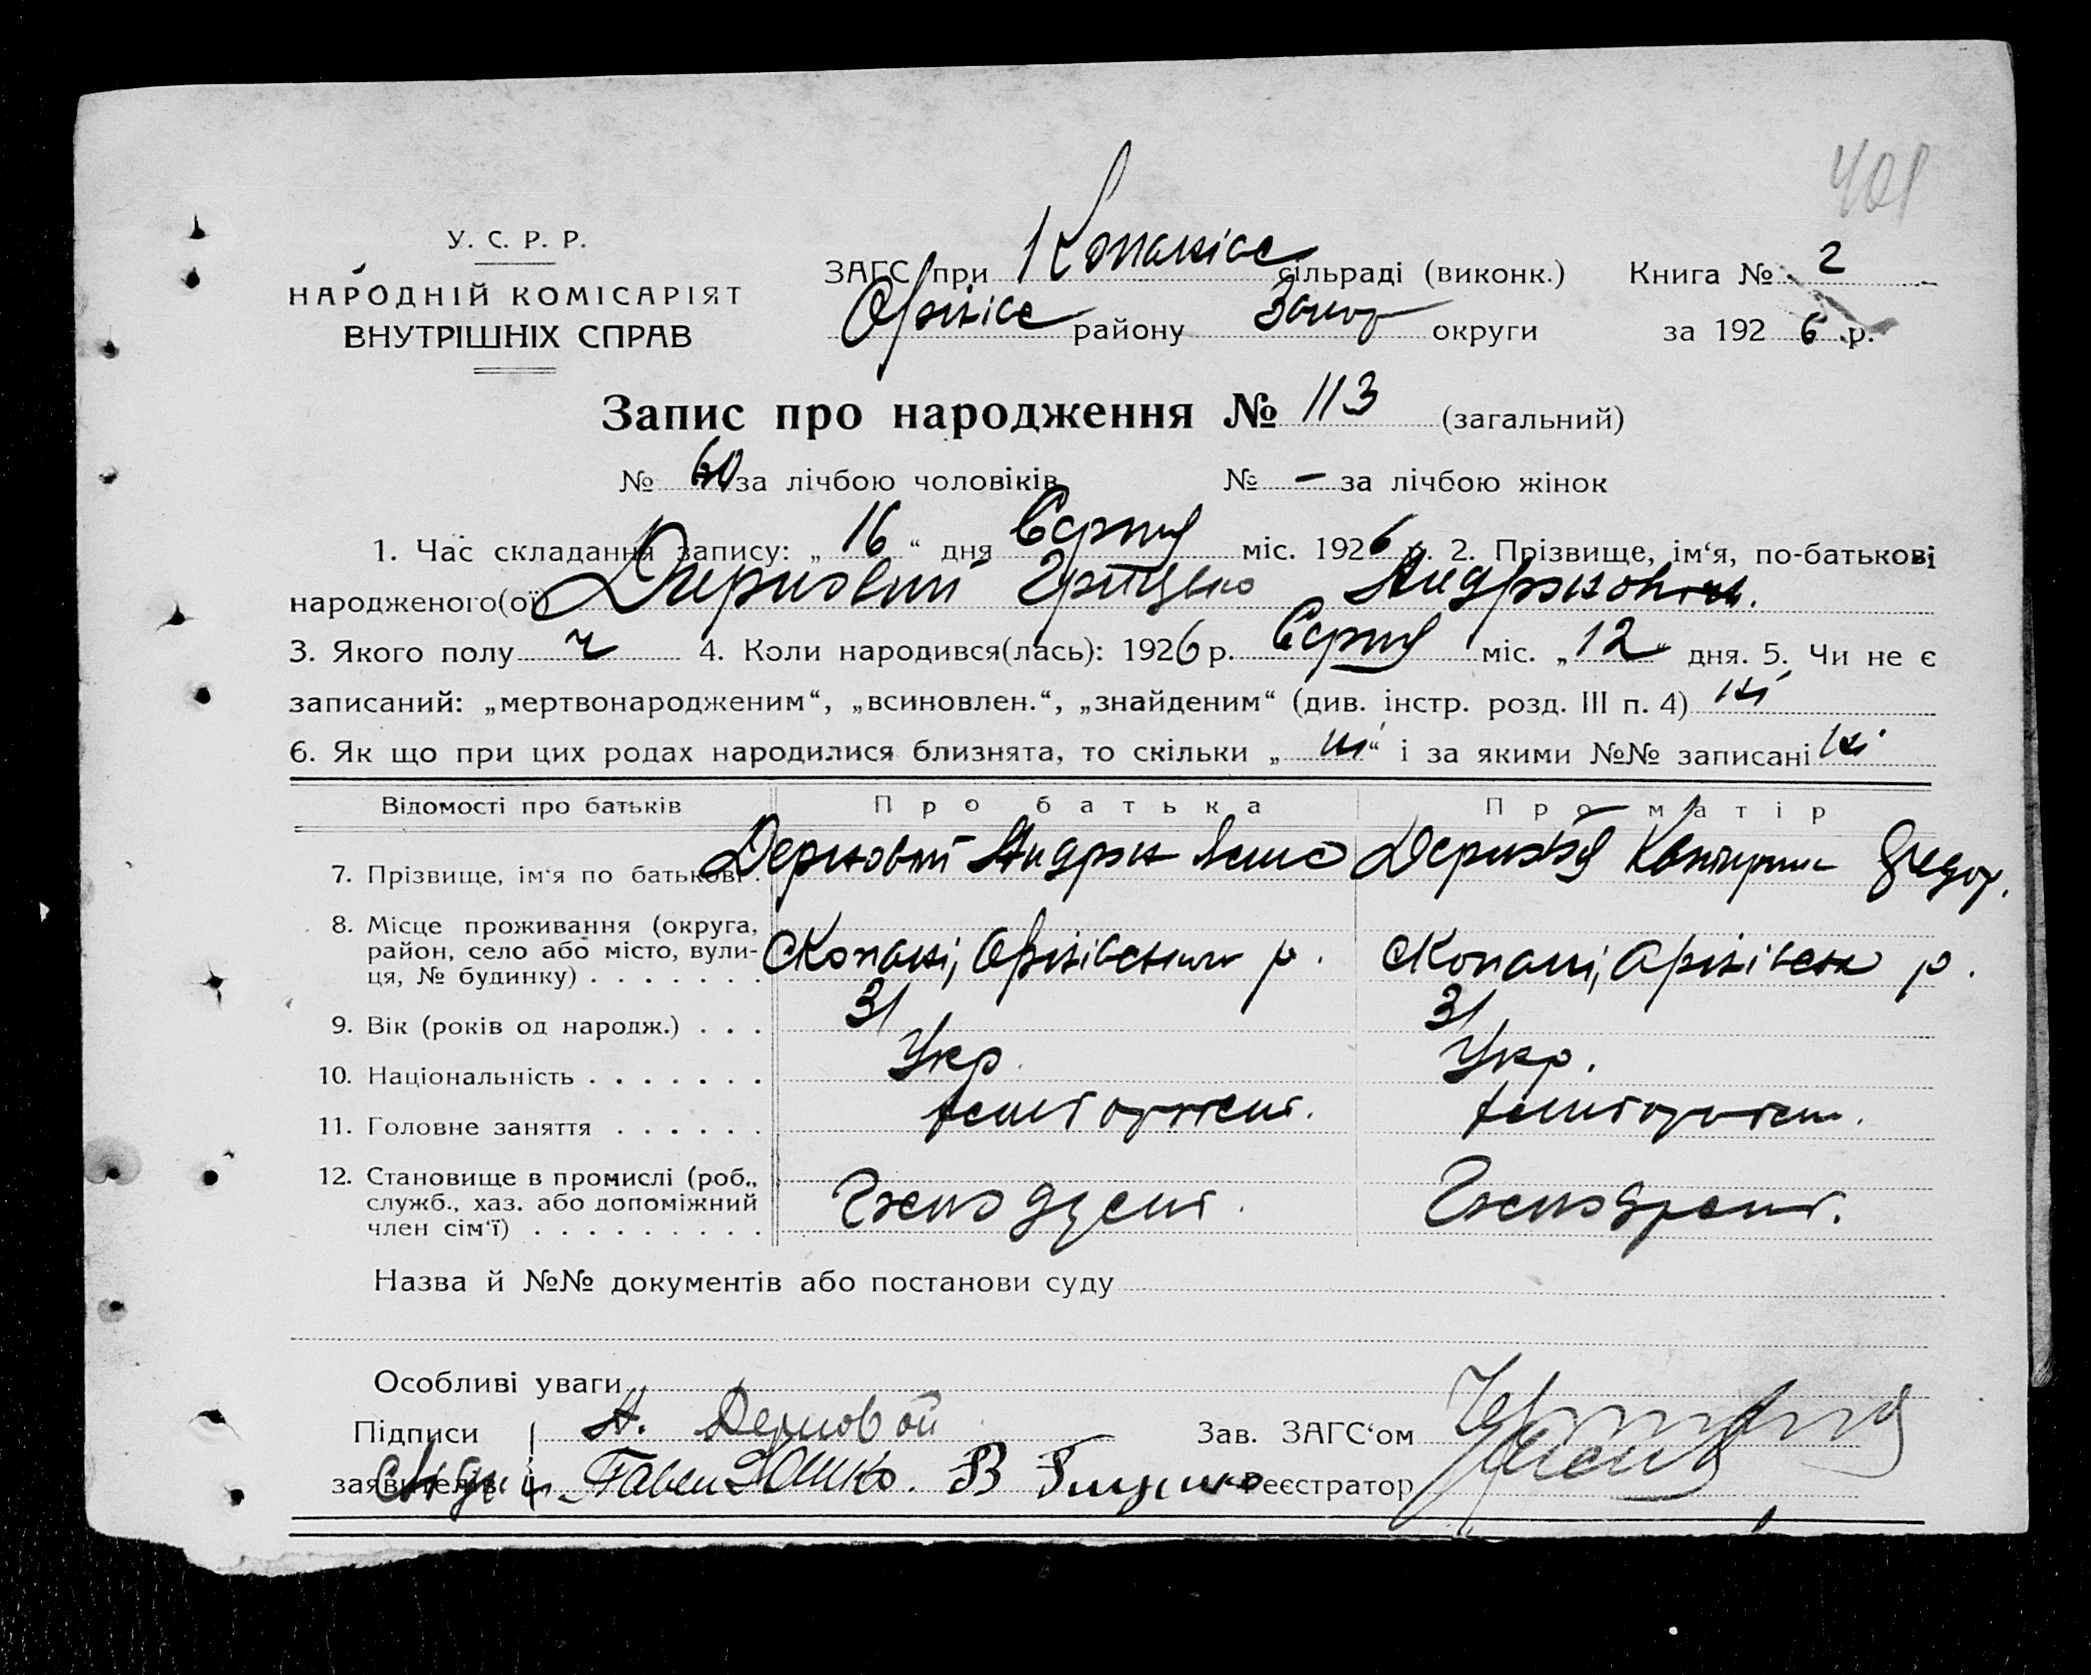 401
У. С. Р. Р.
НАРОДНІЙ КОМІСАРІЯТ
ВНУТРІШНІХ СПРАВ
ЗАГС при Копанівс сільраді (виконк.) Книга № 2
Оріхівс району Запор округи за 1926 р.
Запис про народження № 113 (загальний)
№ 60 за лічбою чоловіків № – за лічбою жінок
1. Час складання запису: „16“ дня Серпня міс. 1926 р. 2. Прізвище, ім‘я, по-батькові
народженого(ої) Дерновий Грицько Андрєєвич.
3. Якого полу ч 4. Коли народився(лась): 1926 р. Серпня міс. „12“ дня. 5. Чи не є
записаний: „мертвонародженим“, „всиновлен.“, „знайденим“ (див. інстр. розд. III п. 4) ні
6. Як що при цих родах народилися близнята, то скільки „ні“ і за якими №№ записані ні
Відомості про батьків Про батька Про матір
7. Прізвище, ім‘я по батькові. Дерновий Андрєй Дернова Катерина Федор.
8. Місце проживання (округа,
район, село або місто, вули-
ця, № будинку) . . . . . . . сКопані, Оріхівськ р. сКопані, Оріхівськ р.
9. Вік (років од народж.) . . . 31 31
10. Національність . . . . . . . Укр. Укр.
11. Головне заняття . . . . . .
12. Становище в промислі (роб.,
служб., хаз. або допоміжний
член сім‘ї) . . . . . . . . .
Назва й №№ документів або постанови суду
Особливі уваги
Підписи А. Дерновой Зав. ЗАГС‘ом
заявителів Реєстратор